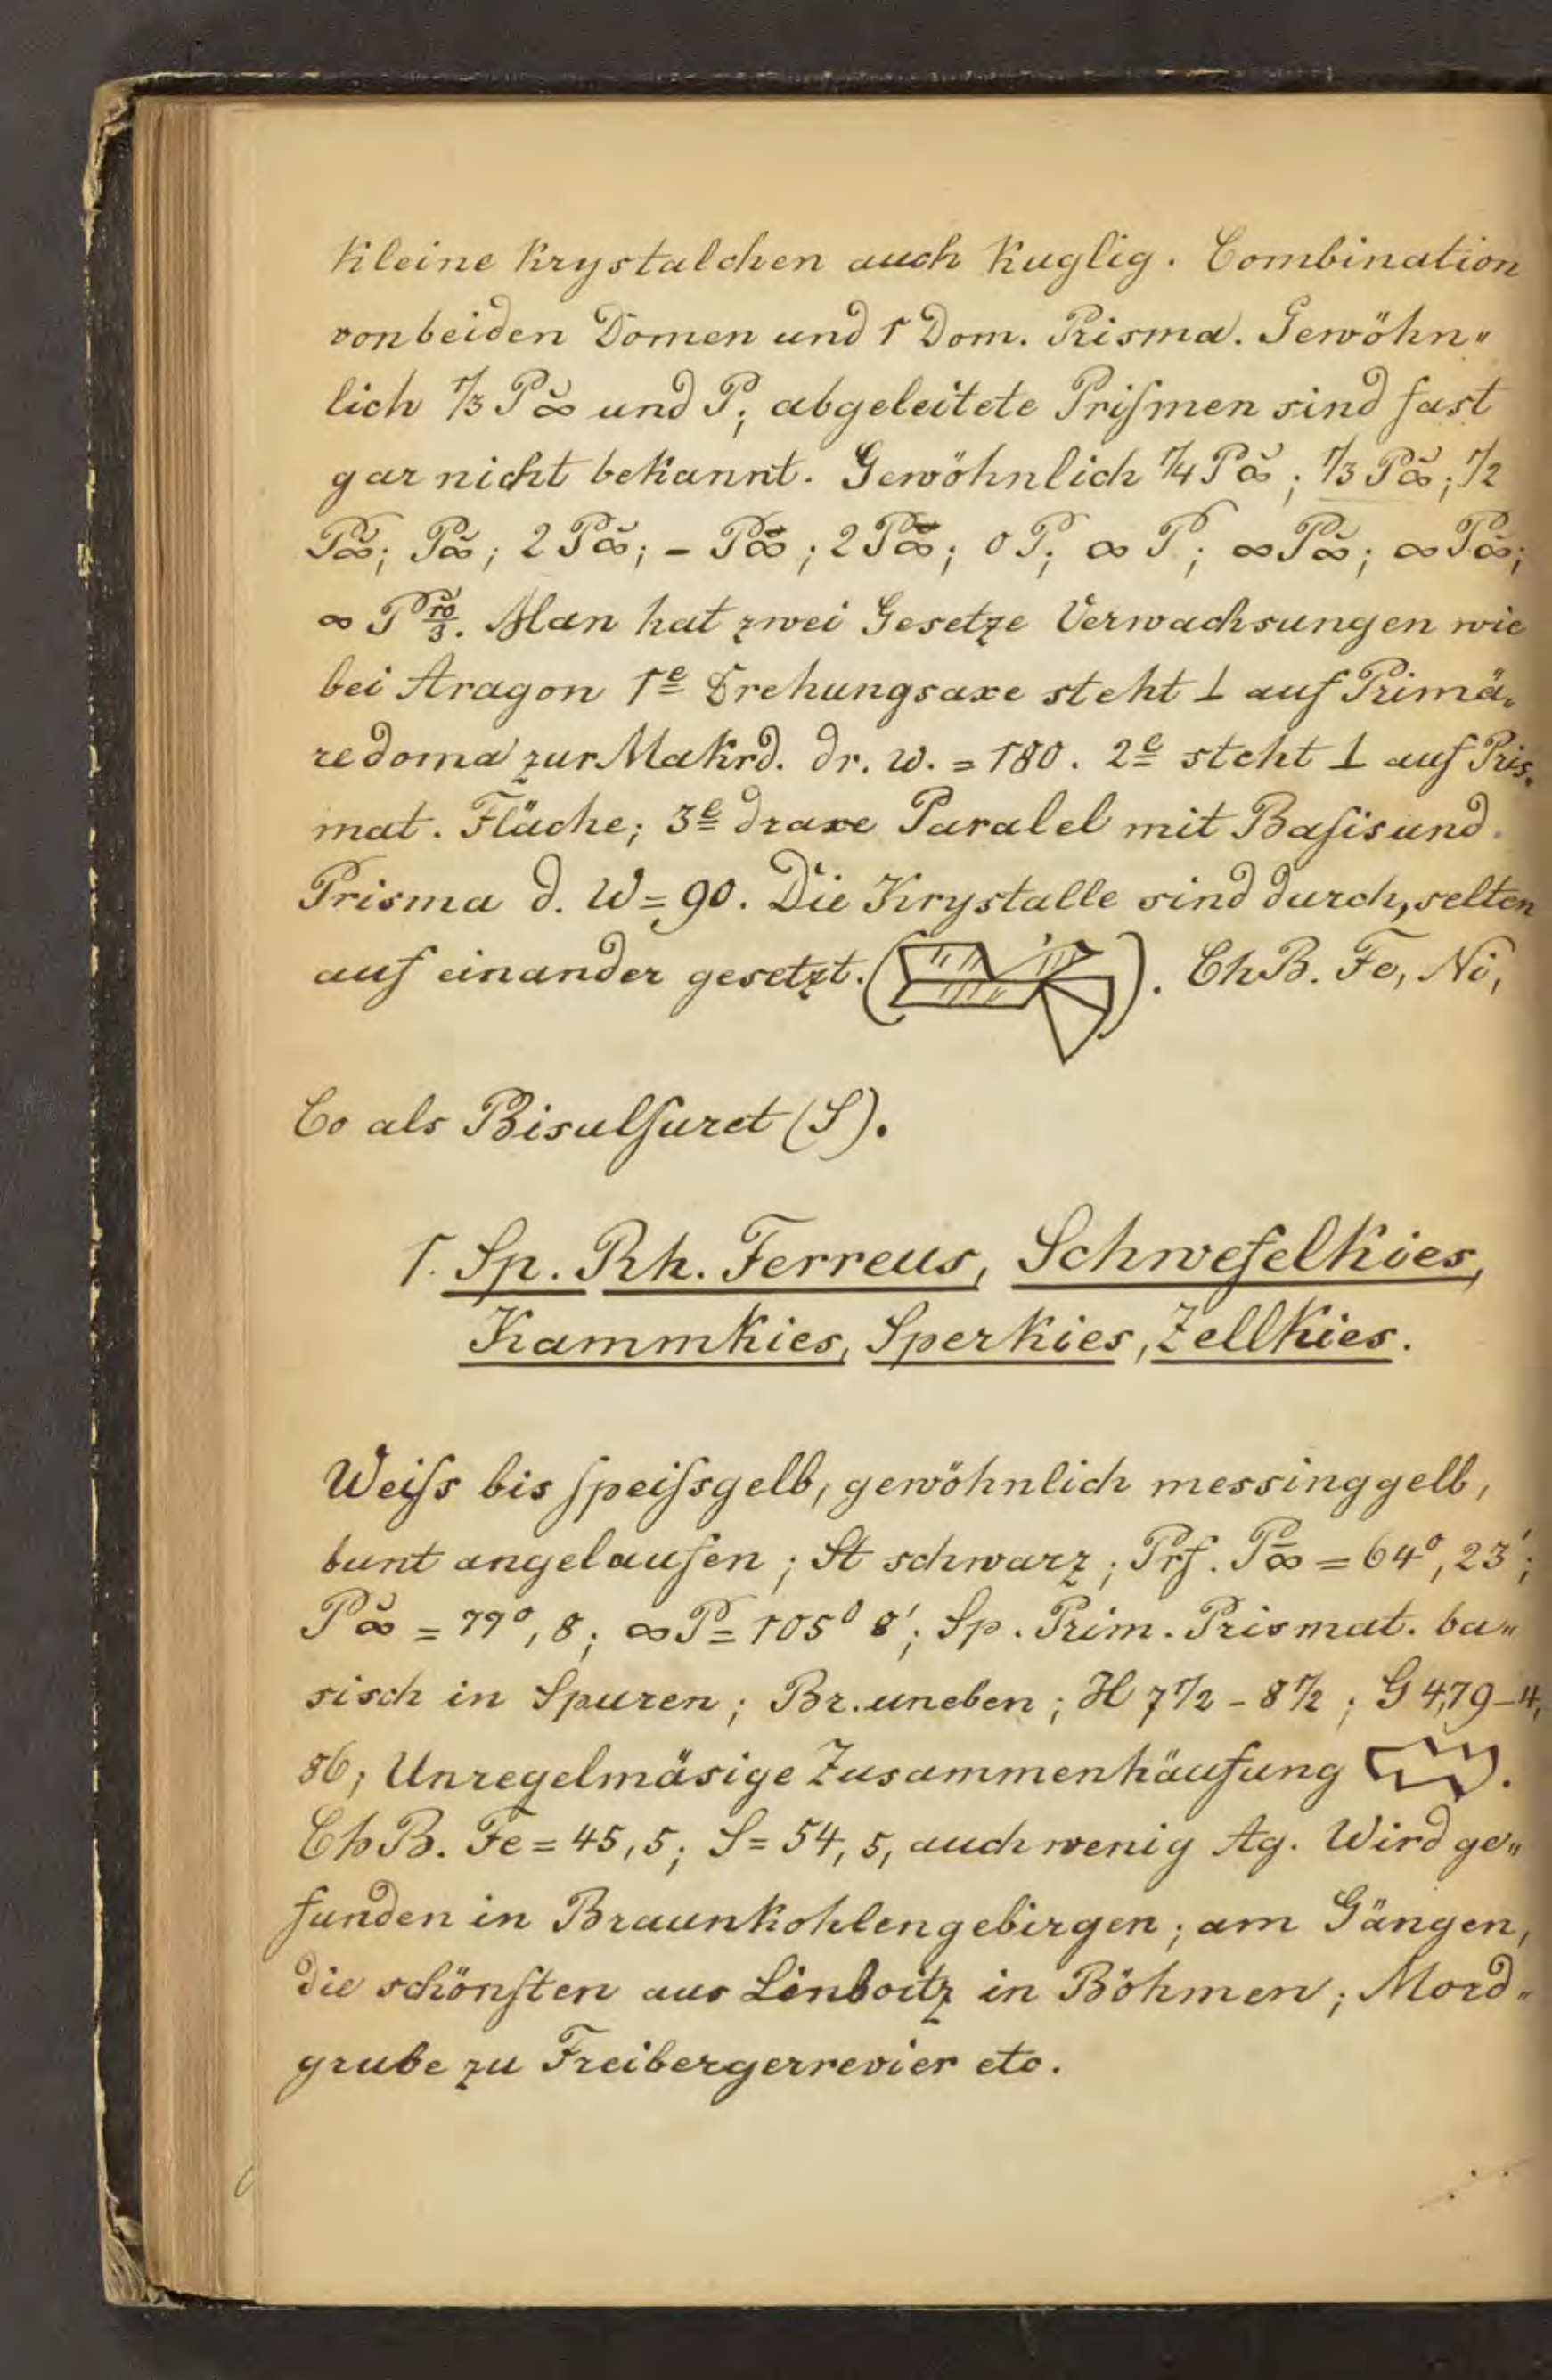 Kleine Krystalchen auch Kuglig. Combination
von beiden Domen und 1 Dom. Prisma. Gewöhn„
lich 1/3 P∞̆ und P; abgeleitete Priſmen sind fast
gar nicht bekannt. Gewöhnlich 1/4 P∞̆; 1/3 P∞̆; 1/2
P∞̆; P∞̆; 2 P∞̆; - P∞̄; 2 P∞̄; 0 P; ∞ P; ∞ P∞̆; ∞ P∞̄;
∞ P 10/3. Man hat zwei Gesetze Verwachsungen wie
bei Aragon 1e Drehungsaxe steht ⊥ auf Primä„
redoma zur Makrd. dr. w. = 180. 2e steht ⊥ auf Pris„
mat. Fläche; 3e draxe Paralel mit Baſis und
Prisma d. W = 90. Die Krystalle sind durch, selten
auf einander gesetzt. ( ). ChB. Fe, Ni,
Co als Bisulfuret (S).
1. Sp. Rh. Ferreus, Schwefelkies,
Kammkies, Sperkies, Zellkies.
Weiſs bis ſpeiſsgelb, gewöhnlich messinggelb,
bunt angelaufen; St schwarz; Prf. P∞̄ = 64°, 23';
P∞̆ = 77°, 8; ∞P = 105° 8'; Sp. Prim. Prismat. ba„
sisch in Spuren; Br. uneben; H 7 1/2 - 8 1/2; G 4,79 - 4,
86; Unregelmäsige Zusammenhäufung .
ChB. Fe = 45,5; S = 54,5, auch wenig Ag. Wird ge„
funden in Braunkohlengebirgen; am Gängen,
die schönſten aus in Böhmen; Mord„
grube zu Freibergerrevier etc.